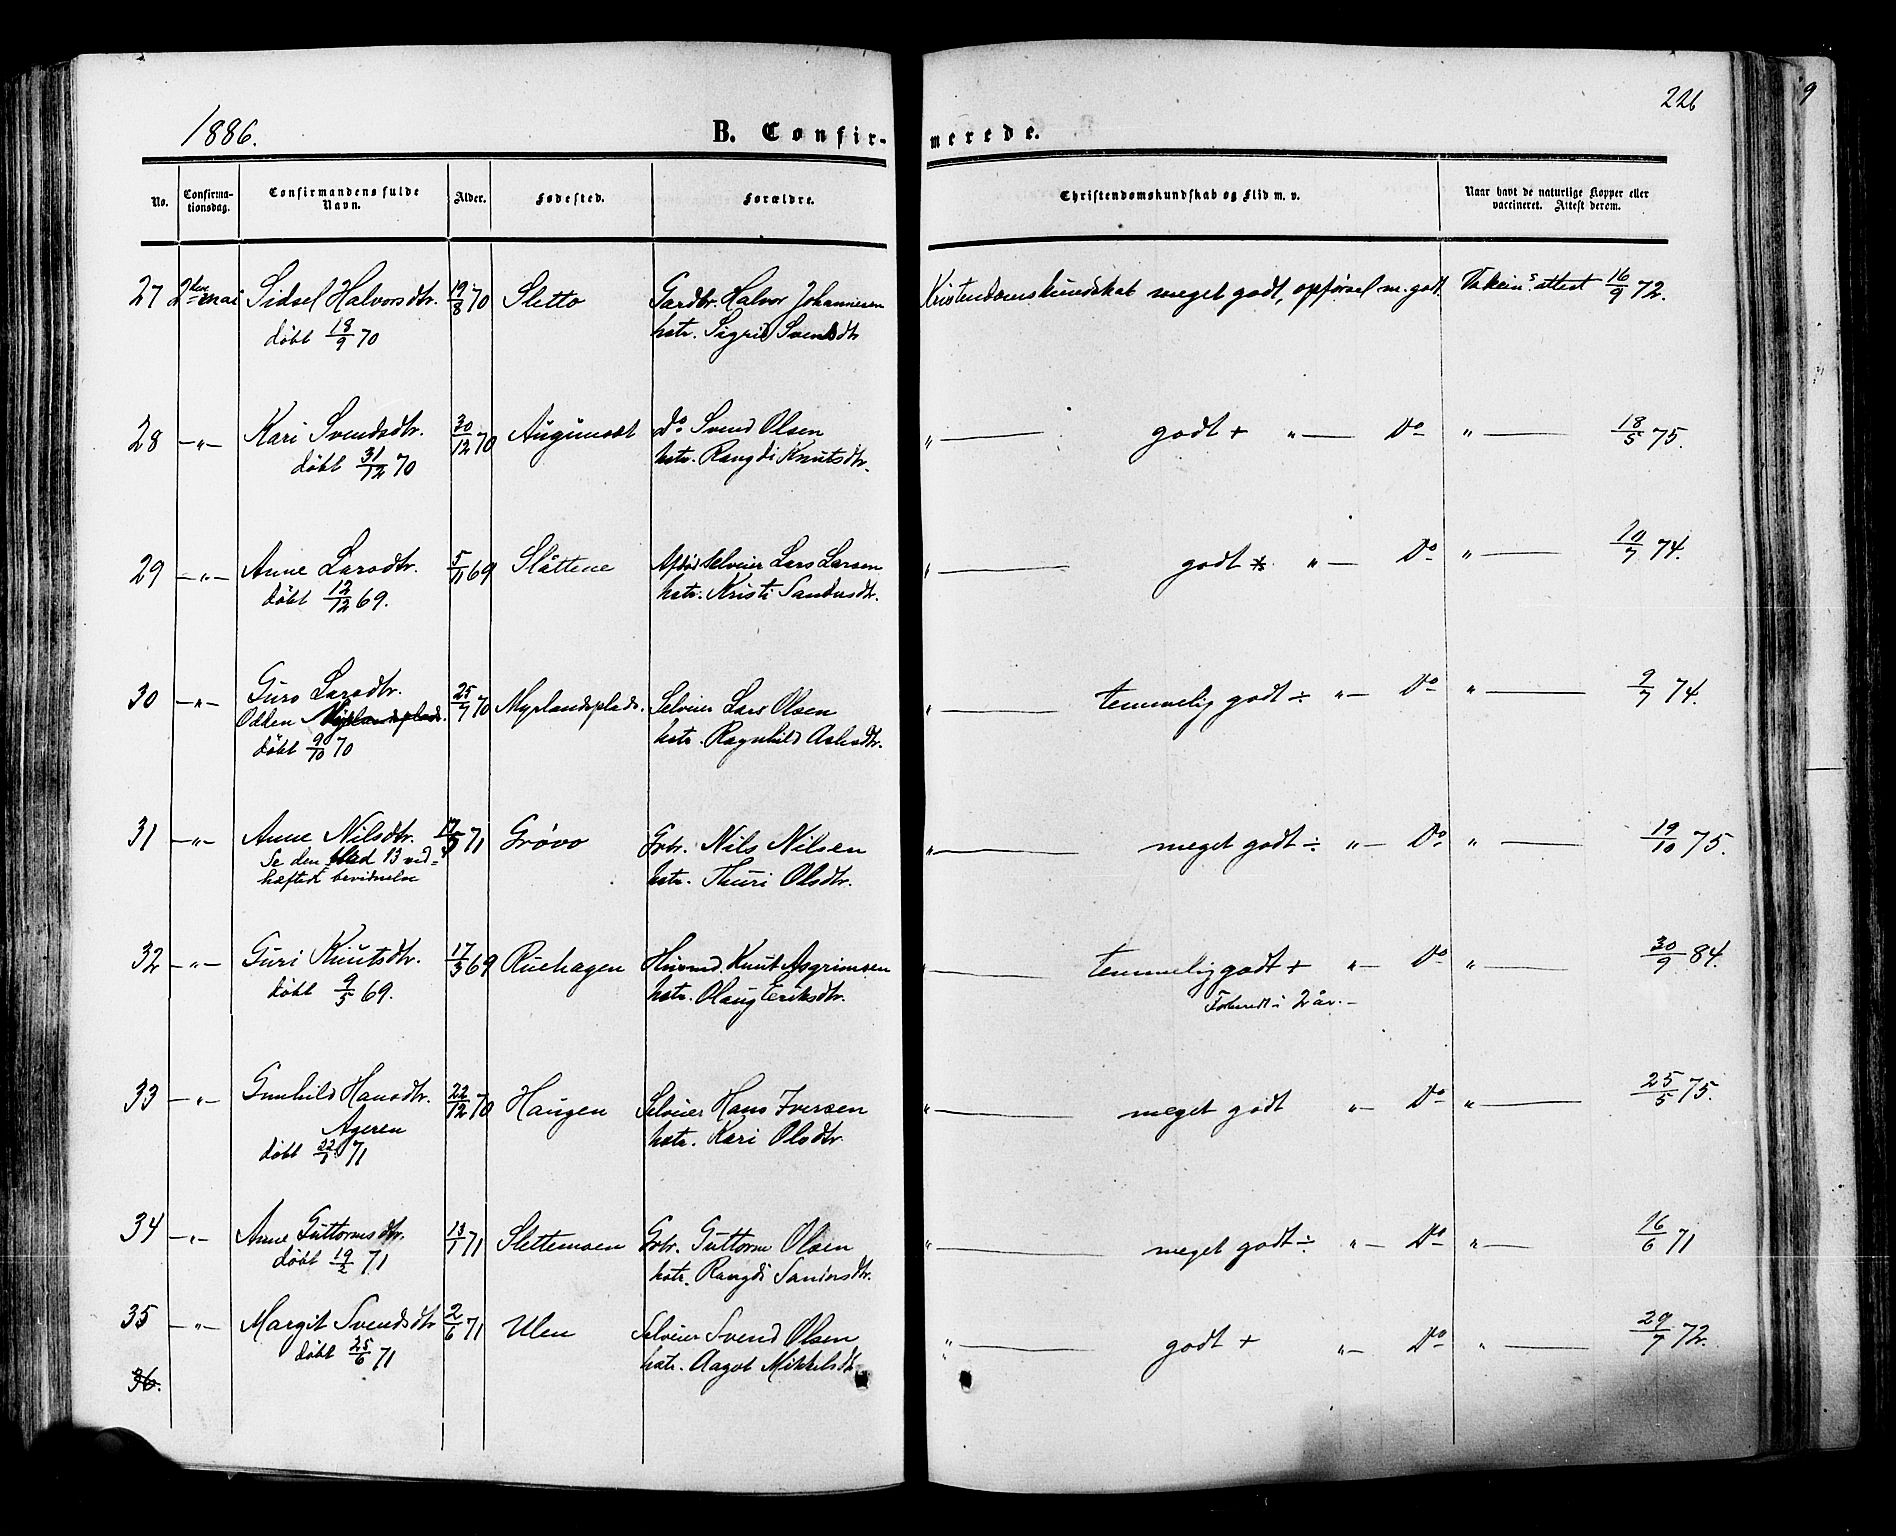 226
9
1886.
B. Confir-
merede.
No.
Confirma-
tionsdag.
Confirmandens fulde
Navn.
Alder.
Fødested.
Forældre.
Christendomskundskab og Flid m. v.
Naar havt de naturlige Kopper eller
vaccineret. Attest derom.
27 2den mai Sidsel Halvorsdtr. 19/8 70 Sletto Gardbr. Halvor Johannesen Kristendomskundskab meget godt, opførsel m. godt. Vakcin. attest 16/9 72.
døbt 18/9 70 hstr. Sigrid Svendsdtr
28 -"- Kari Svendsdtr. 30/12 70 do Svend Olsen " godt + " Do " 18/5 75.
døbt 31/12 70 hstr. Rangdi Knutsdtr.
29 -"- Anne Larsdtr. 5/11 69 Slåttene Afdøde Selveier Lars Larsen " godt " Do " 10/7 74.
døbt 12/12 69. hstr. Kristi
30 -"- Guro Larsdtr. 25/7 70 Myrlandsplads. Selveier Lars Olsen " temmelig godt ÷ " Do " 9/7 74.
Odden Myrlandsplads. hstr. Ragnhild
døbt 9/10 70
31 -"- Anne Nilsdtr. 71 Grøvo Grbr. Nils Nilsen " meget godt ÷ " Do " 19/10 75.
Se den blad 13 ved- hstr. Thuri Olsdtr.
hæftede bevidnelse
32 -"- Guri Knutsdtr. 17/3 69 Ruehagen Husmd. Knut Asgrimsen " temmelig godt + " Do " 30/9 84.
døbt 9/5 69. hstr. Olaug Eriksdtr. Forberedt i 2 år.
33 -"- Gunhild Hansdtr. 22/12 70 Haugen Selveier Hans Iversen " meget godt " Do " 25/5 75.
Ageren hstr. Kari Olsdtr.
døbt 22/1 71
34 -"- Anne Guttormsdtr. 13/1 71 Slettemoen Grbr. Guttorm Olsen " meget godt ÷ " Do " 16/6 71
døbt 19/2 71 hstr. Rangdi
35 -"- Margit Svendsdtr 2/6 71 Ulen Selveier Svend Olsen " godt + " Do " 29/7 72.
døbt 25/6 71 hstr. Aagot Mikkelsdtr
36.